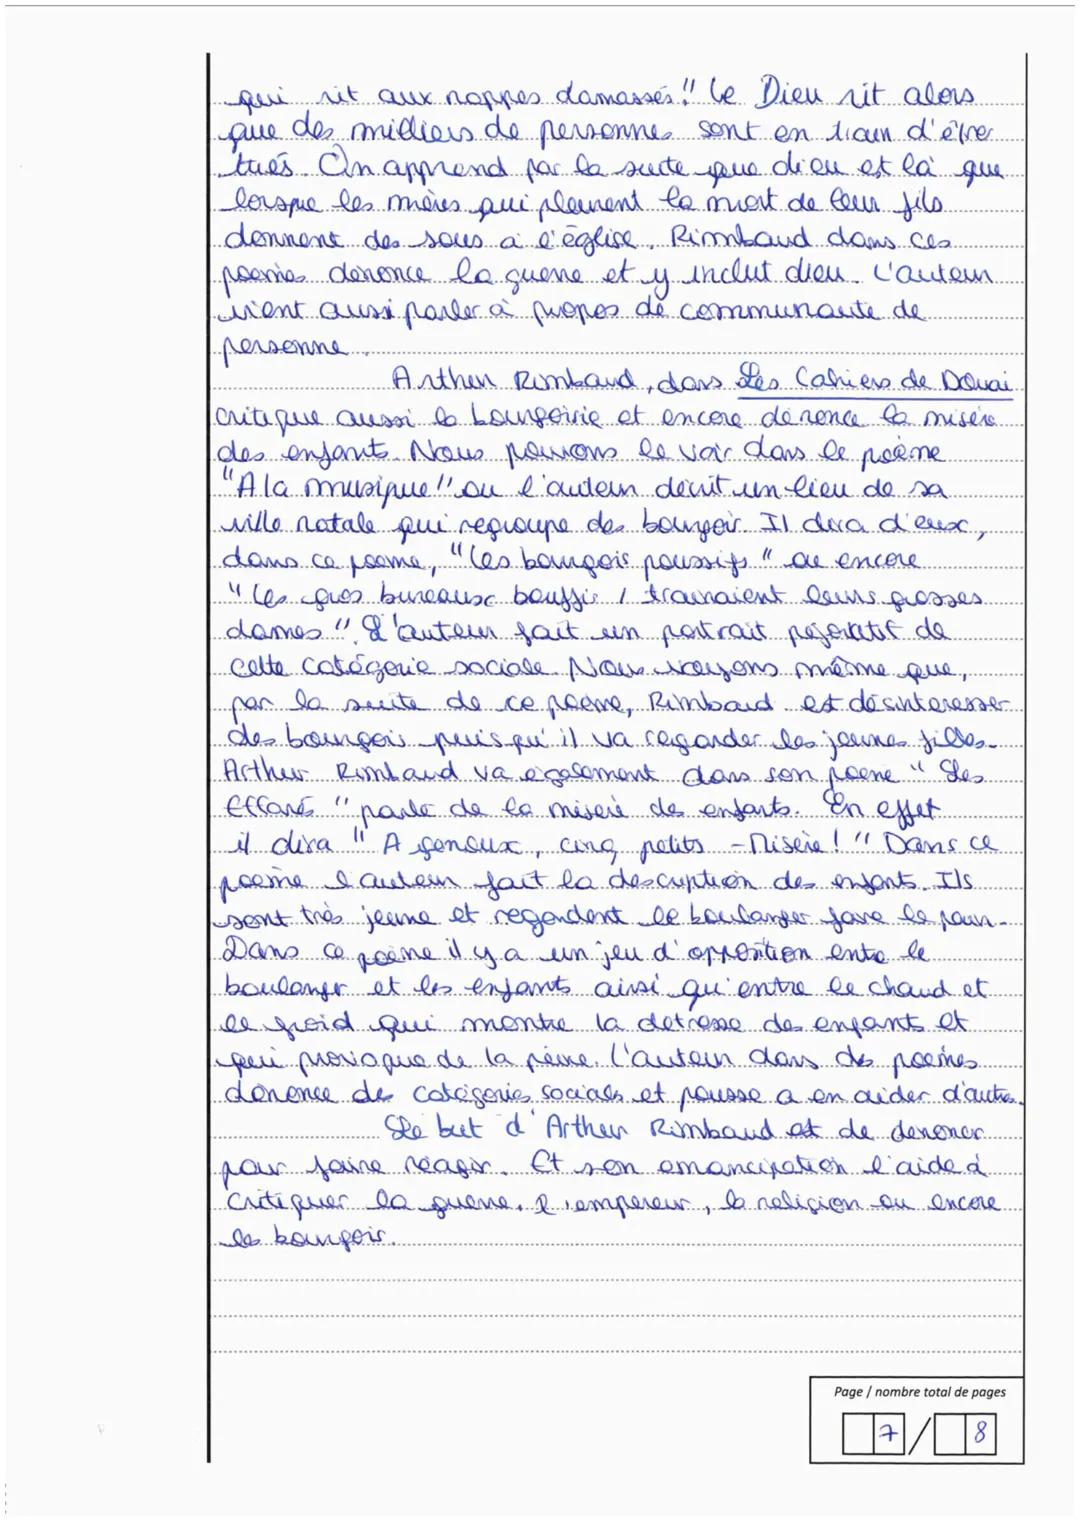 qui rit aux nappes damassés". Le Dieu rit alors
que des milliers de personnes sont en train d'être
tués. On apprend par la suite que dieu est là que
lorsque les mères qui pleurent la mort de leur fils
donnent des sous a l'église. Rimbaud dans ces
poemes denonce la guerre et y inclut dieu. L'auteur
vient aussi parler à propos de communauté de
personne.
Arthur Rimbaud, dans Les Cahiers de Douai
critique aussi la bourgoirie et encore dénonce la misère
des enfants. Nous pouvons le voir dans le poème
"A la musique" ou l'auteur décrit un lieu de sa
ville natale qui regroupe des bourgois. Il dira d'eux,
dans ce poeme, "Les bourgois poussifs" ou encore
"Les gros bureaux bouffis / trainaient leurs grosses
dames". L'auteur fait un portrait pejoratif de
cette catégorie sociale. Nous voyons même que,
par la suite de ce poeme, Rimbaud est désinteresser
des bourgois puisqu'il va regarder les jeunes filles.
Arthur Rimbaud va également dans son poeme "Les
Effarés" parlé de la misere des enfants. En effet
il dira "A genoux, cinq petits - Misère !" Dans ce
poeme l'auteur fait la description des enfants. Ils
sont très jeune et regardent le boulanger faire le pain.
Dans ce poème il y a un jeu d'opposition entre le
boulanger et les enfants ainsi qu'entre le chaud et
le froid qui montre la detresse des enfants et
qui provoque de la peine. L'auteur dans ds poemes
denonce des catégories sociales et pousse a en aider d'autres.
Le but d'Arthur Rimbaud est de denoncer
pour faire réagir. Et son emancipation l'aide à
critiquer la guerre, l'empereur, la religion ou encore
les bourgois.
Page / nombre total de pages
7 / 8